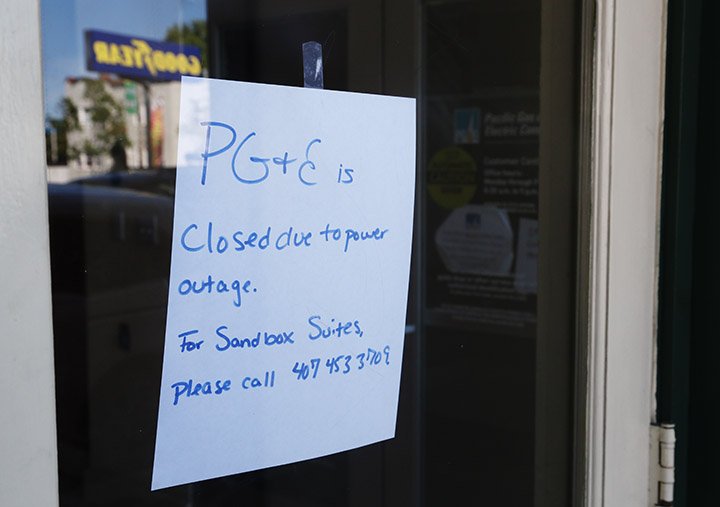 GOODYEAR
PG+E is
Closed due to power
outage.
For Sandbox Suites,
please call 407 453 3709
Pacific Gas
Electric
Customer